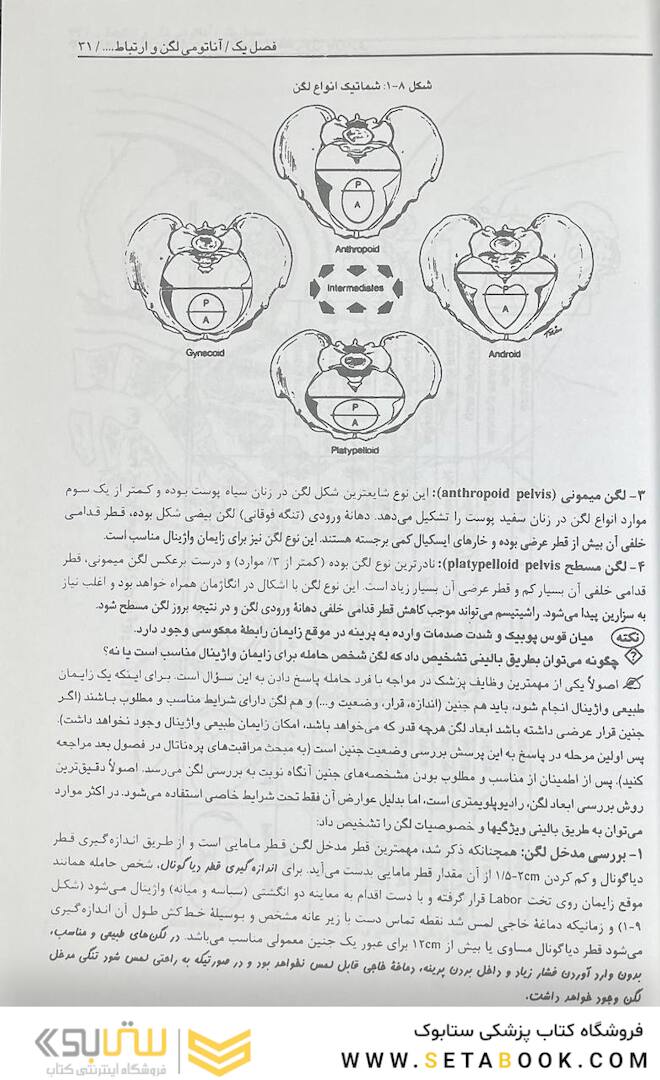 فصل یک / آناتومی لگن و ارتباط.... / ۳۱
شکل ۸-۱: شماتیک انواع لگن
P
A
Anthropoid
P
A
Gynecoid
Intermediates
A
Android
P
A
Platypelloid
۳- لگن میمونی (anthropoid pelvis): این نوع شایعترین شکل لگن در زنان سیاه پوست بوده و کمتر از یک سوم
موارد انواع لگن در زنان سفید پوست را تشکیل می‌دهد. دهانهٔ ورودی (تنگه فوقانی) لگن بیضی شکل بوده، قطر قدامی
خلفی آن بیش از قطر عرضی بوده و خارهای ایسکیال کمی برجسته هستند. این نوع لگن نیز برای زایمان واژینال مناسب است.
۴- لگن مسطح (platypelloid pelvis): نادرترین نوع لگن بوده (کمتر از ۳٪ موارد) و درست برعکس لگن میمونی، قطر
قدامی خلفی آن بسیار کم و قطر عرضی آن بسیار زیاد است. این نوع لگن با اشکال در انگاژمان همراه خواهد بود و اغلب نیاز
به سزارین پیدا می‌شود. راشیتیسم می‌تواند موجب کاهش قطر قدامی خلفی دهانهٔ ورودی لگن و در نتیجه بروز لگن مسطح شود.
نکته میان قوس پوبیک و شدت صدمات وارده به پرینه در موقع زایمان رابطهٔ معکوسی وجود دارد.
? چگونه می‌توان بطریق بالینی تشخیص داد که لگن شخص حامله برای زایمان واژینال مناسب است یا نه؟
اصولاً یکی از مهمترین وظایف پزشک در مواجه با فرد حامله پاسخ دادن به این سؤال است. برای اینکه یک زایمان
طبیعی واژینال انجام شود، باید هم جنین (اندازه، قرار، وضعیت و...) و هم لگن دارای شرایط مناسب و مطلوب باشند (اگر
جنین قرار عرضی داشته باشد ابعاد لگن هرچه قدر که می‌خواهد باشد، امکان زایمان طبیعی واژینال وجود نخواهد داشت).
پس اولین مرحله در پاسخ به این پرسش بررسی وضعیت جنین است (به مبحث مراقبت‌های پره‌ناتال در فصول بعد مراجعه
کنید). پس از اطمینان از مناسب و مطلوب بودن مشخصه‌های جنین آنگاه نوبت به بررسی لگن می‌رسد. اصولاً دقیق‌ترین
روش بررسی ابعاد لگن، رادیوپلویمتری است، اما بدلیل عوارض آن فقط تحت شرایط خاصی استفاده می‌شود. در اکثر موارد
می‌توان به طریق بالینی ویژگیها و خصوصیات لگن را تشخیص داد:
۱- بررسی مدخل لگن: همچنانکه ذکر شد، مهمترین قطر مدخل لگن قطر مامایی است و از طریق اندازه‌گیری قطر
دیاگونال و کم کردن ۱/۵-۲cm از آن مقدار قطر مامایی بدست می‌آید. برای اندازه گیری قطر دیاگونال، شخص حامله همانند
موقع زایمان روی تخت Labor قرار گرفته و با دست اقدام به معاینه دو انگشتی (سبابه و میانه) واژینال می‌شود (شکل
۹-۱) و زمانیکه دماغهٔ خاجی لمس شد نقطه تماس دست با زیر عانه مشخص و بوسیلهٔ خط‌کش طول آن اندازه‌گیری
می‌شود قطر دیاگونال مساوی یا بیش از ۱۲cm برای عبور یک جنین معمولی مناسب می‌باشد. در لگن‌های طبیعی و مناسب،
بدون وارد آوردن فشار زیاد و داخل بردن پرینه، دماغهٔ خاجی قابل لمس نخواهد بود و در صورتیکه به راحتی لمس شود تنگی مدخل
لگن وجود خواهد داشت.
فروشگاه کتاب پزشکی ستابوک
WWW.SETABOOK.COM
ستابوک
فروشگاه اینترنتی کتاب